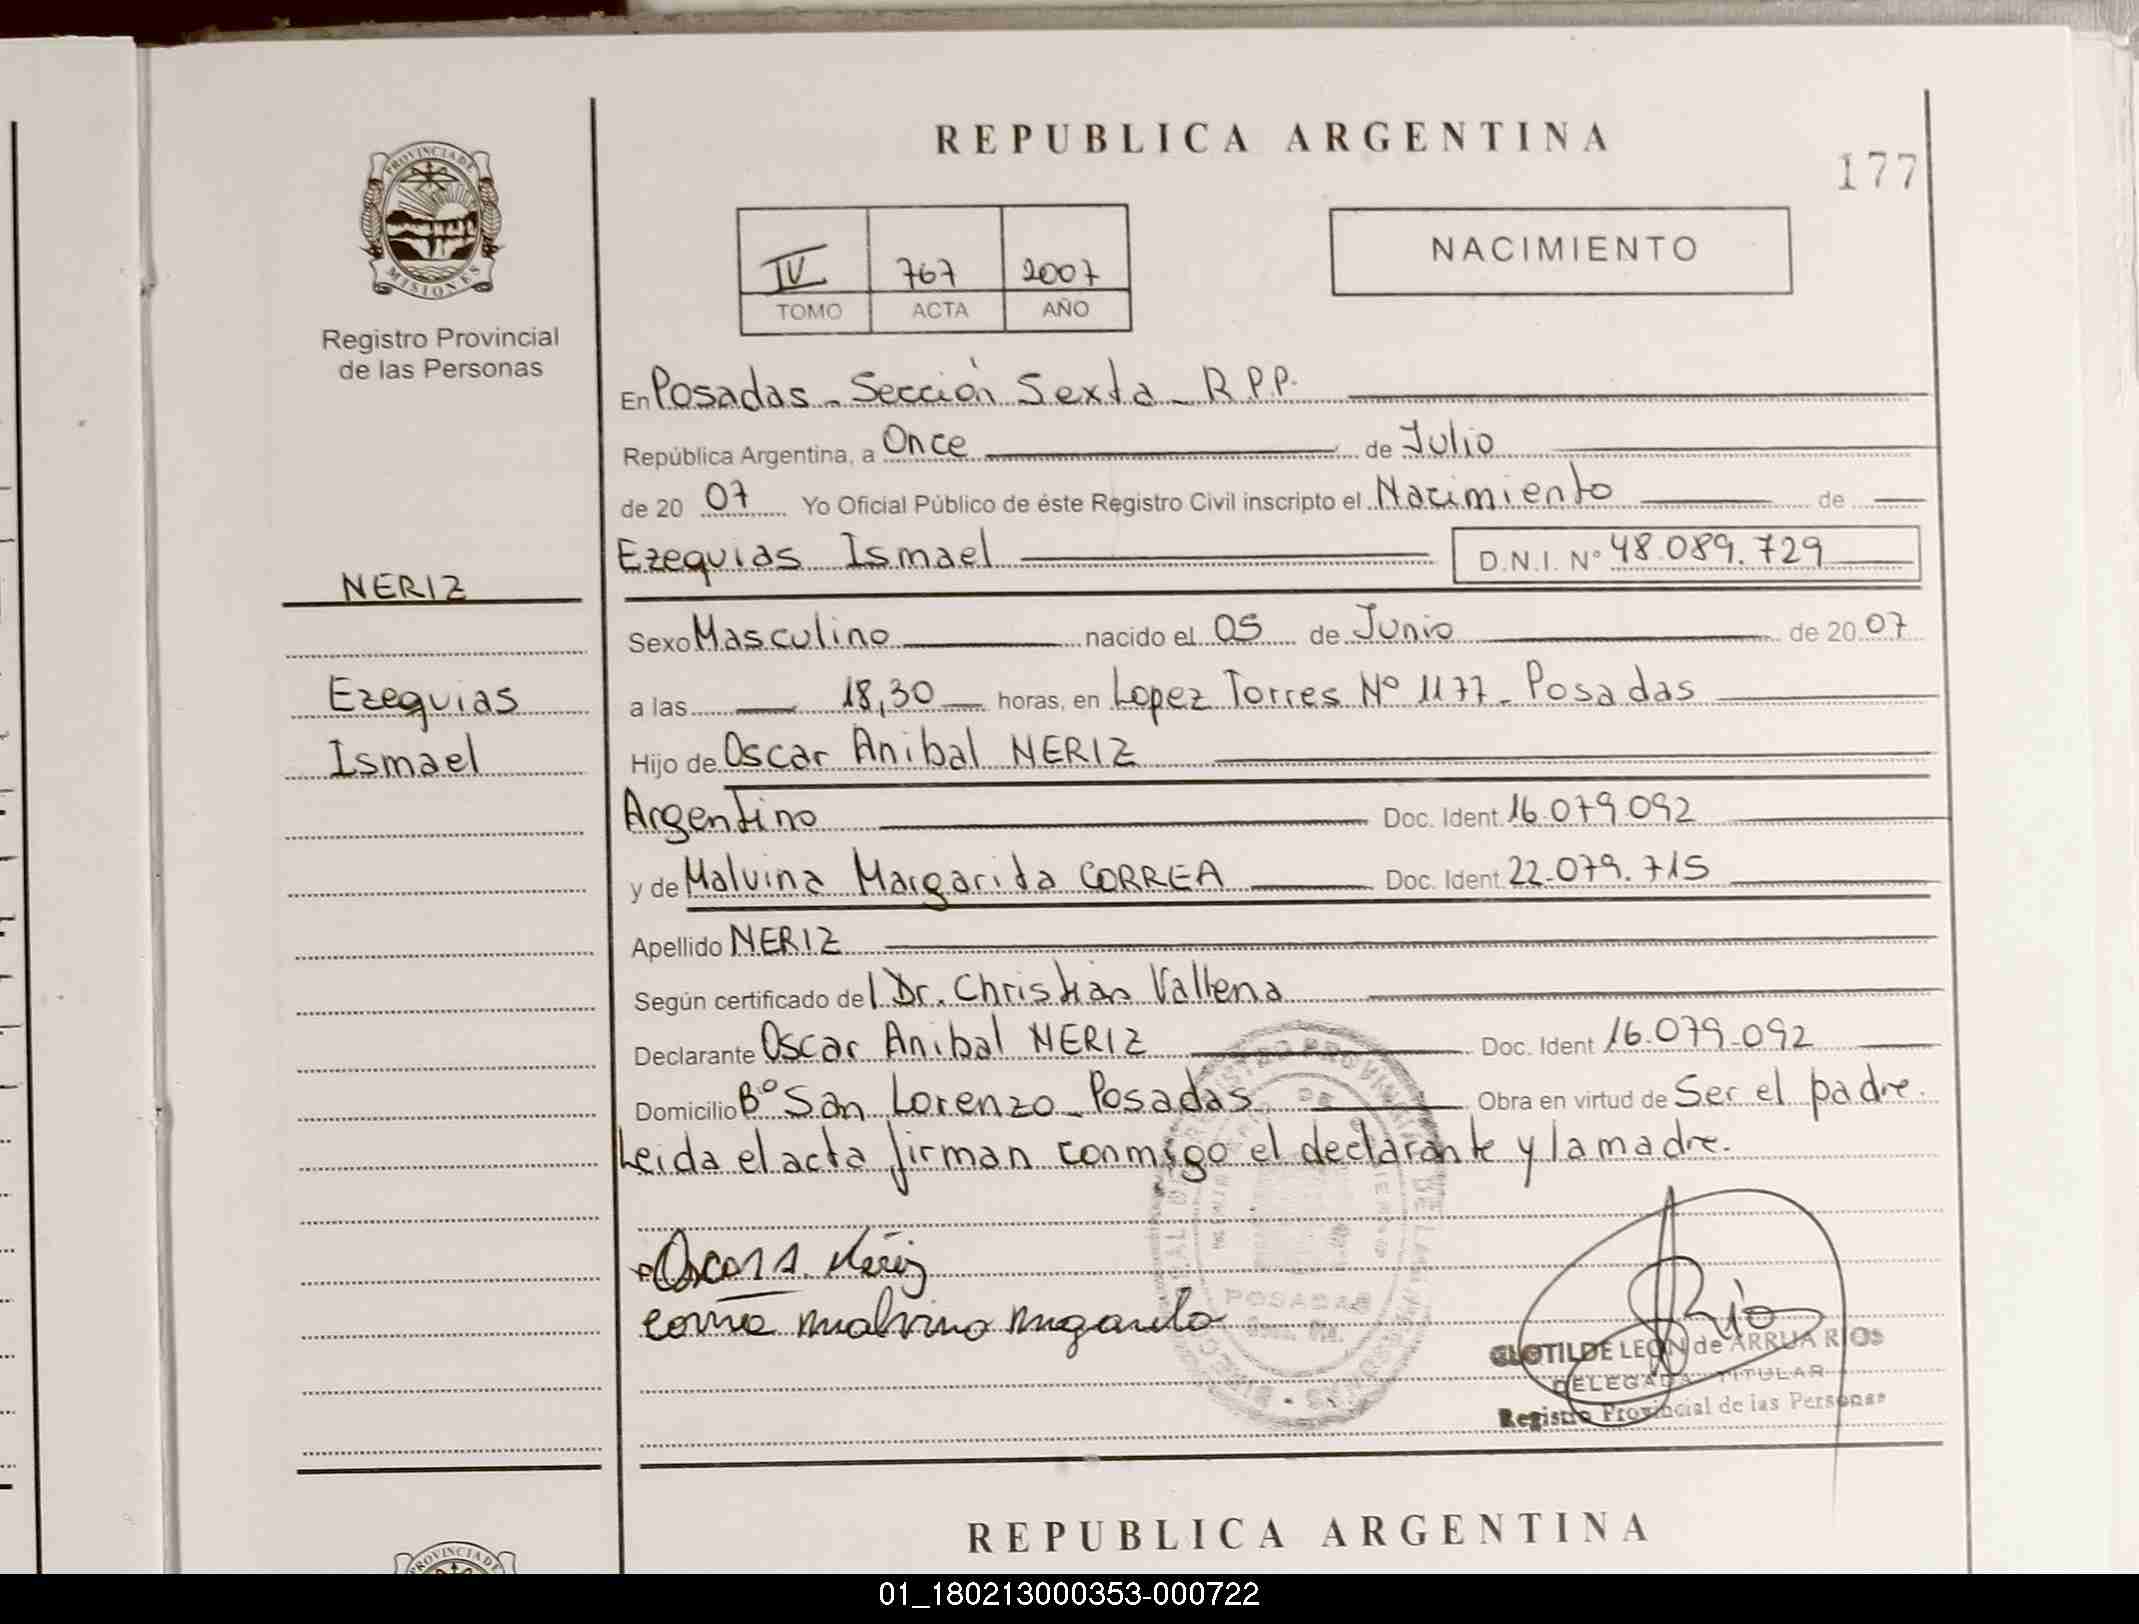 REPUBLICA ARGENTINA
177
PROVINCIA DE
MISIONES
Registro Provincial
de las Personas
IV 767 2007
TOMO ACTA AÑO
NACIMIENTO
En Posadas - Sección Sexta - R.P.P.
República Argentina, a Once de Julio
de 20 07 Yo Oficial Público de éste Registro Civil inscripto el Nacimiento de
Ezequias Ismael D.N.I. Nº 48.089.729
NERIZ
Ezequias
Ismael
Sexo Masculino nacido el 05 de Junio de 20 07
a las 18,30 horas, en Lopez Torres Nº 1177 - Posadas
Hijo de Oscar Anibal NERIZ
Argentino Doc. Ident. 16.079.092
y de Malvina Margarita CORREA Doc. Ident. 22.079.715
Apellido NERIZ
Según certificado del Dr. Christian Vallena
Declarante Oscar Anibal NERIZ Doc. Ident 16.079.092
Domicilio Bº San Lorenzo - Posadas Obra en virtud de Ser el padre.
Leida el acta firman conmigo el declarante y la madre.
Oscar A. Neriz
POSADAS
CLOTILDE LEON de ARRUA RIOS
DELEGADA TITULAR
Registro Provincial de las Personas
REPUBLICA ARGENTINA
PROVINCIA DE
01_180213000353-000722